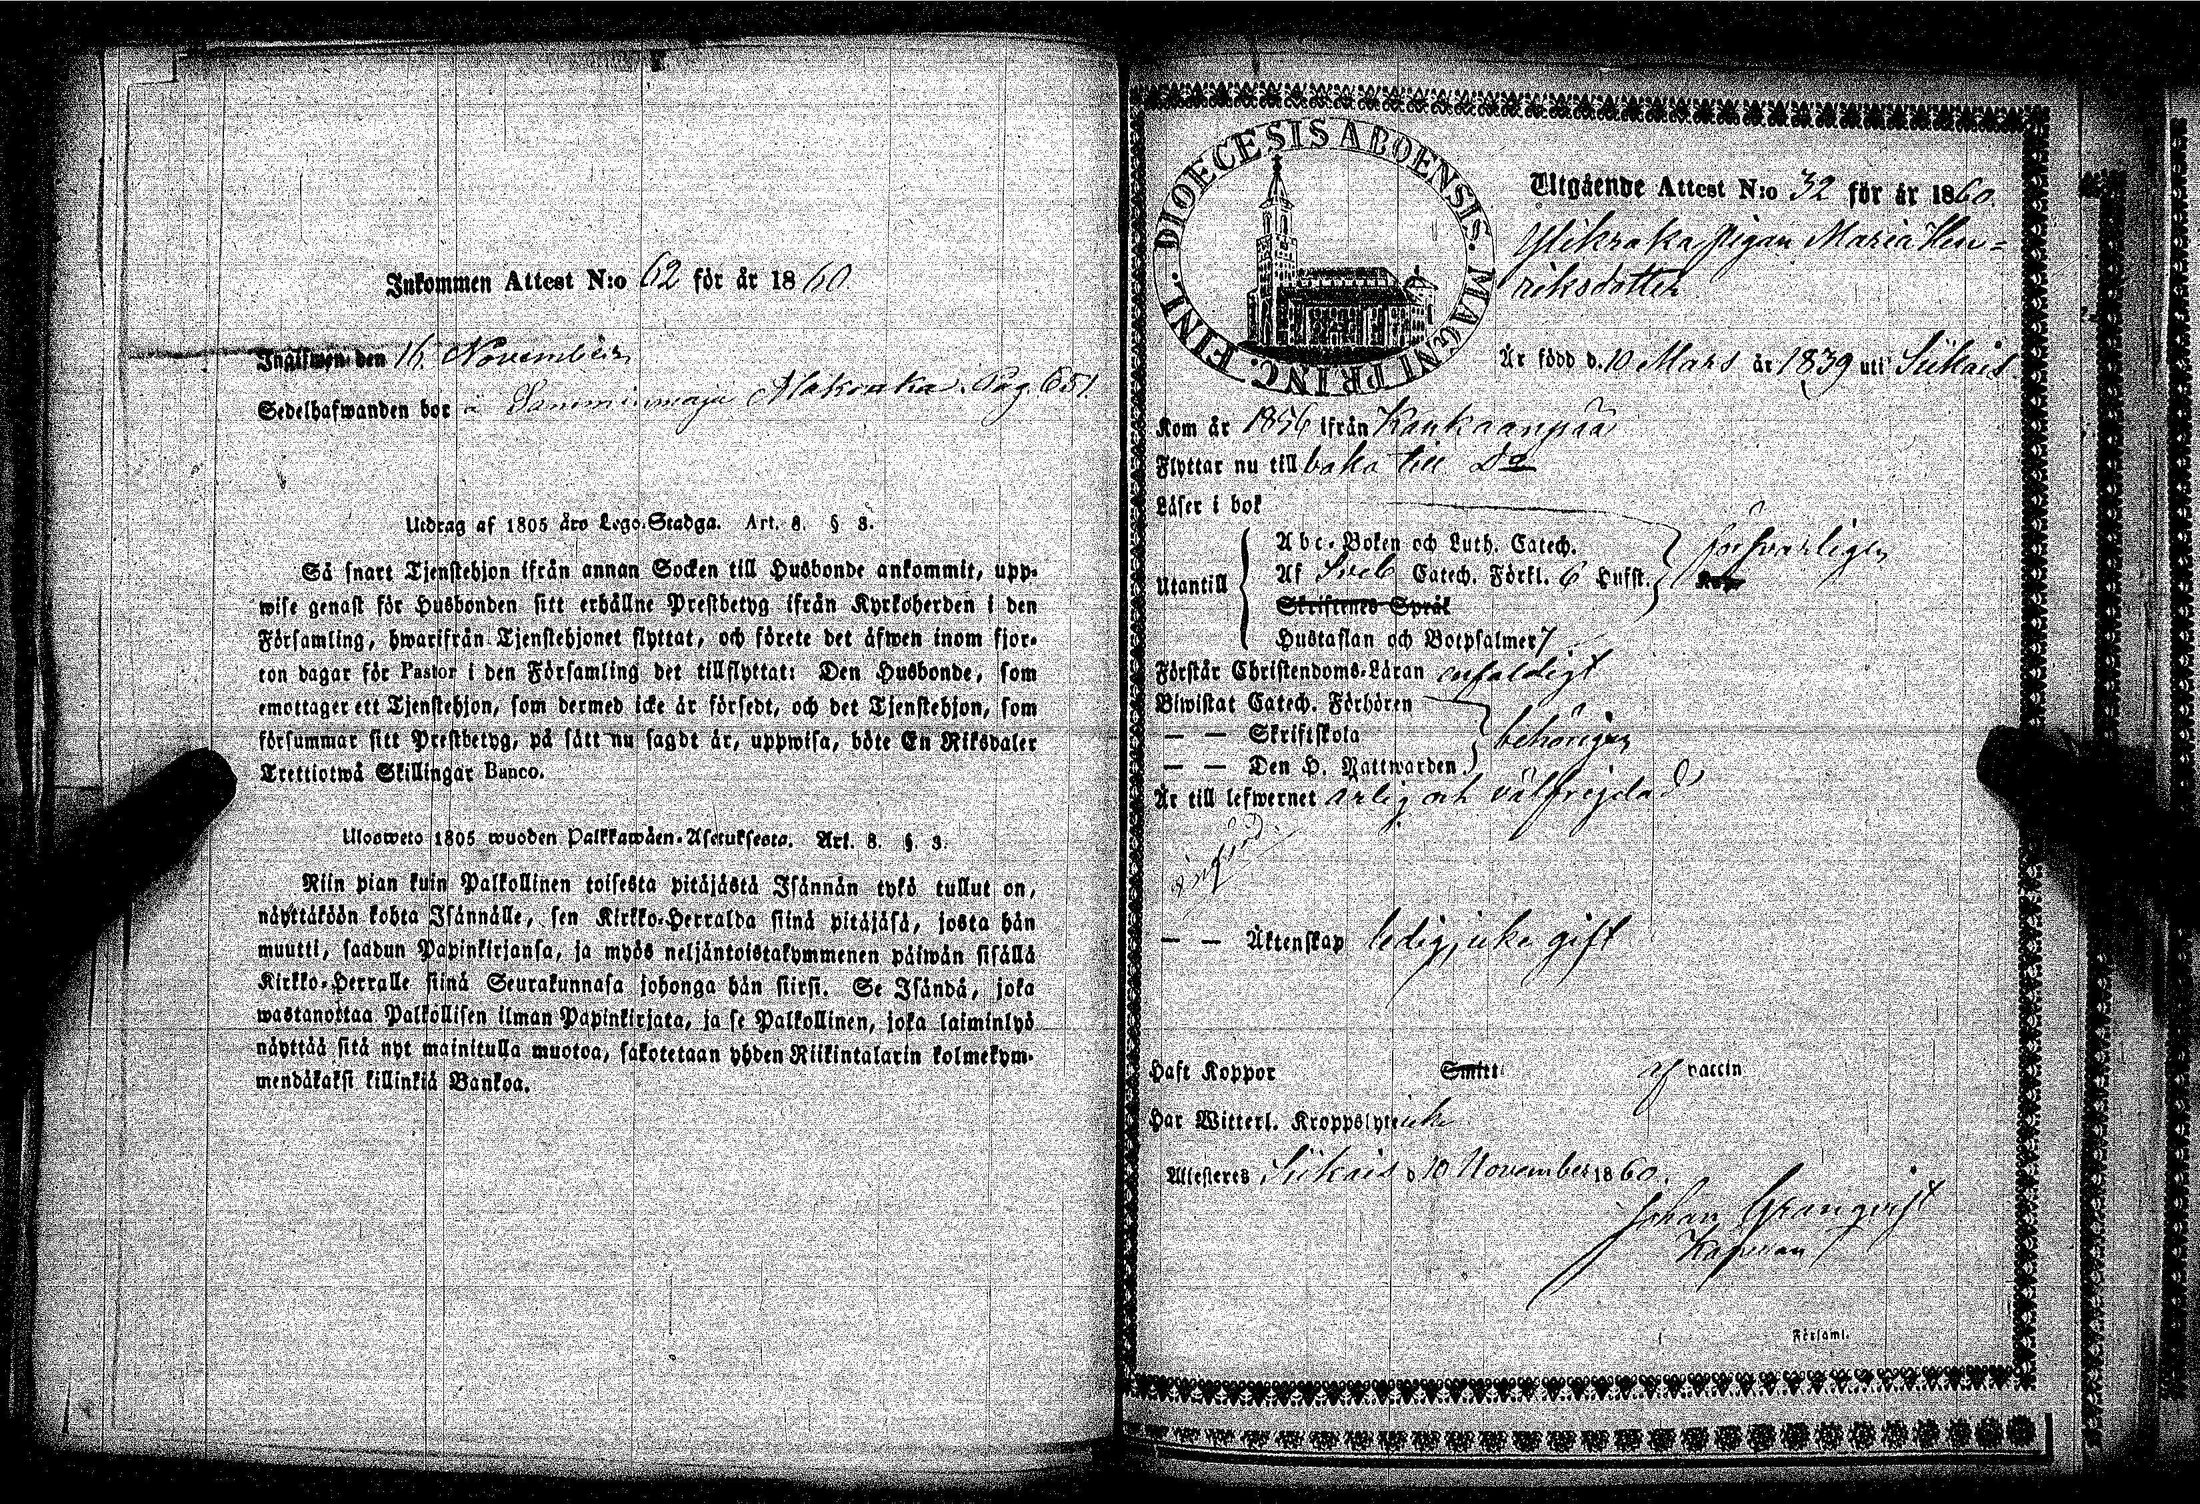 Inkommen Attest N:o 62 för år 1860
Ingifwen den 16 November
Sedelhafwanden bor å Pag. 651.
Utdrag af 1805 års Lego-Stadga. Art. 8. § 3.
Så snart Tjenstehjon ifrån annan Socken till Husbonde ankommit, upp-
wise genast för Husbonden sitt erhållne Prestbetyg ifrån Kyrkoherden i den
Församling, hwarifrån Tjenstehjonet flyttat, och förete det äfwen inom fjor-
ton dagar för Pastor i den Församling det tillflyttat: Den Husbonde, som
emottager ett Tjenstehjon, som dermed icke är försedt, och det Tjenstehjon, som
försummar sitt Prestbetyg, på sätt nu sagdt är, uppwisa, böte En Riksdaler
Trettiotwå Skillingar Banco.
Ulosweto 1805 wuoden Palkkawäen-Asetuksesta. Art. 8. §. 3.
Niin pian kuin Palkollinen toisesta pitäjästä Isännän tykö tullut on,
näyttäköön kohta Isännälle, sen Kirkko-Herralda siinä pitäjäsä, josta hän
muutti, saadun Papinkirjansa, ja myös neljäntoistakymmenen päiwän sisällä
Kirkko-Herralle siinä Seurakunnasa johonga hän siirsi. Se Isändä, joka
wastanottaa Palkollisen ilman Papinkirjata, ja se Palkollinen, joka laiminlyö
näyttää sitä nyt mainitulla muotoa, sakotetaan yhden Riikintalarin kolmekym-
mendäkaksi killinkiä Bankoa.
DIOECESIS ABOENSIS. MAGNI PRINC. FINL.
Utgående Attest N:o 32 för år 1860.
Ylikraka Pigan Maria Hen=
riksdotter
Är född d. 10 Mars år 1839 uti Siikais
Kom år 1856 ifrån Kankaanpää
Flyttar nu till baka till Do
Läser i bok
Abc-Boken och Luth. Catech. försvarligen
Utantill Af Sveb Catech. Förkl. 6 Hufst.
Skriftenes Språk
Hustaflan och Botpsalmer 7
Förstår Christendoms-Läran enfaldigt
Biwistat Catech. Förhören
— — Skriftskola behörigen
— — Den H. Nattwarden
Är till lefwernet ärlig och välfrejdad
— — Äktenskap ledig, icke gift
Haft Koppor Smitt af vaccin
Har Witterl. Kroppslyte icke
Attesteres Siikais d 10 November 1860.
Johan Granqvist
Kapellan
Församl.